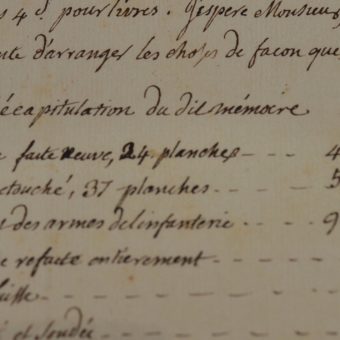 4 d. pour livres. J'espere Monsieur
d'arranger les choses de façon que
récapitulation du dit mémoire
faite neuve, 24 planches - - - 4
retouché, 37 planches - - - - 5
des armes de l'infanterie - - - 9
refaite entierement - - - -
et soudée - - - - -